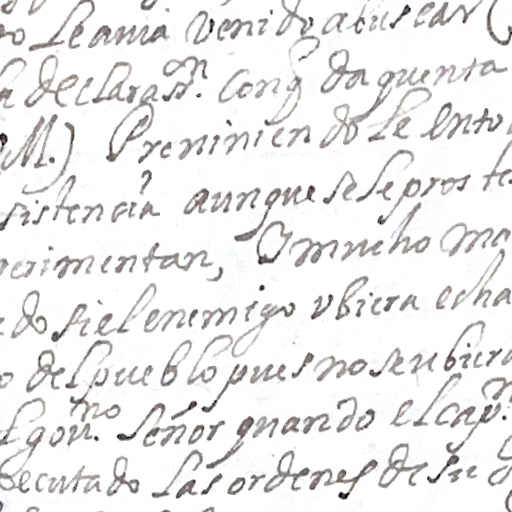 Le avia venido abuscar
declaraz.on Conq̃ da quenta
M.) Preniniendole
sistencia aunque se le
perimentan, Y mucho
do si el enemigo vbiera echa
del pueblo pues no se vbiera
Egou.no señor quando el cap.n
secutado las ordenes de su